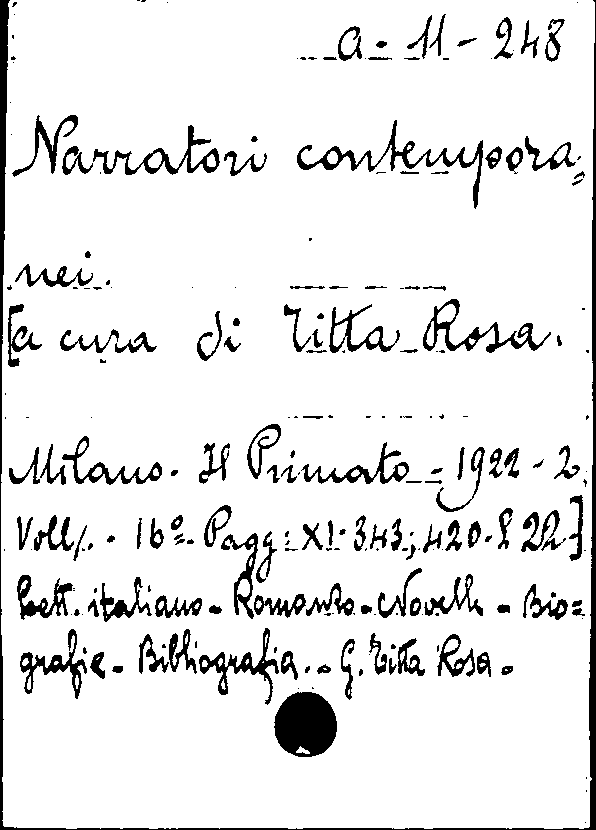 a - 11 - 248
Narratori contempora=
nei.
[a cura di Titta Rosa.
Milano. Il Primato - 1922 - 2
Voll/. - 16º. Pagg: XI-343; 420. £ 22]
Lett. italiano - Romanzo - Novelle - Bio=
grafie - Bibliografia. - G. Titta Rosa -